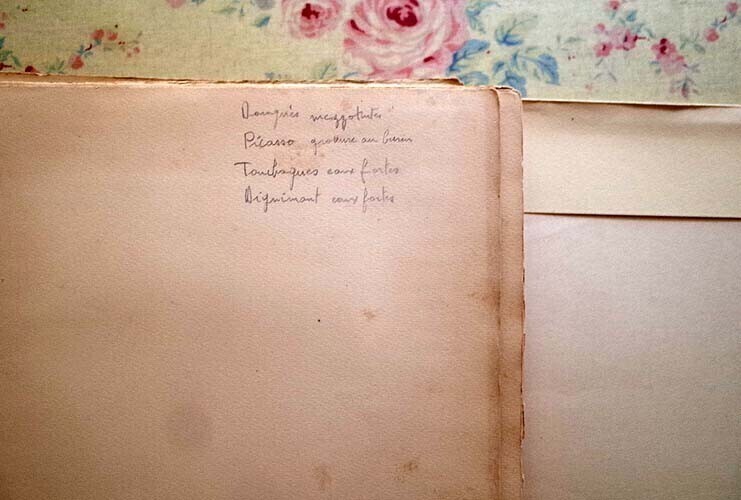 Daragnès mezzotinte
Picasso gravure au burin
Touchagues eaux fortes
Dignimont eaux fortes